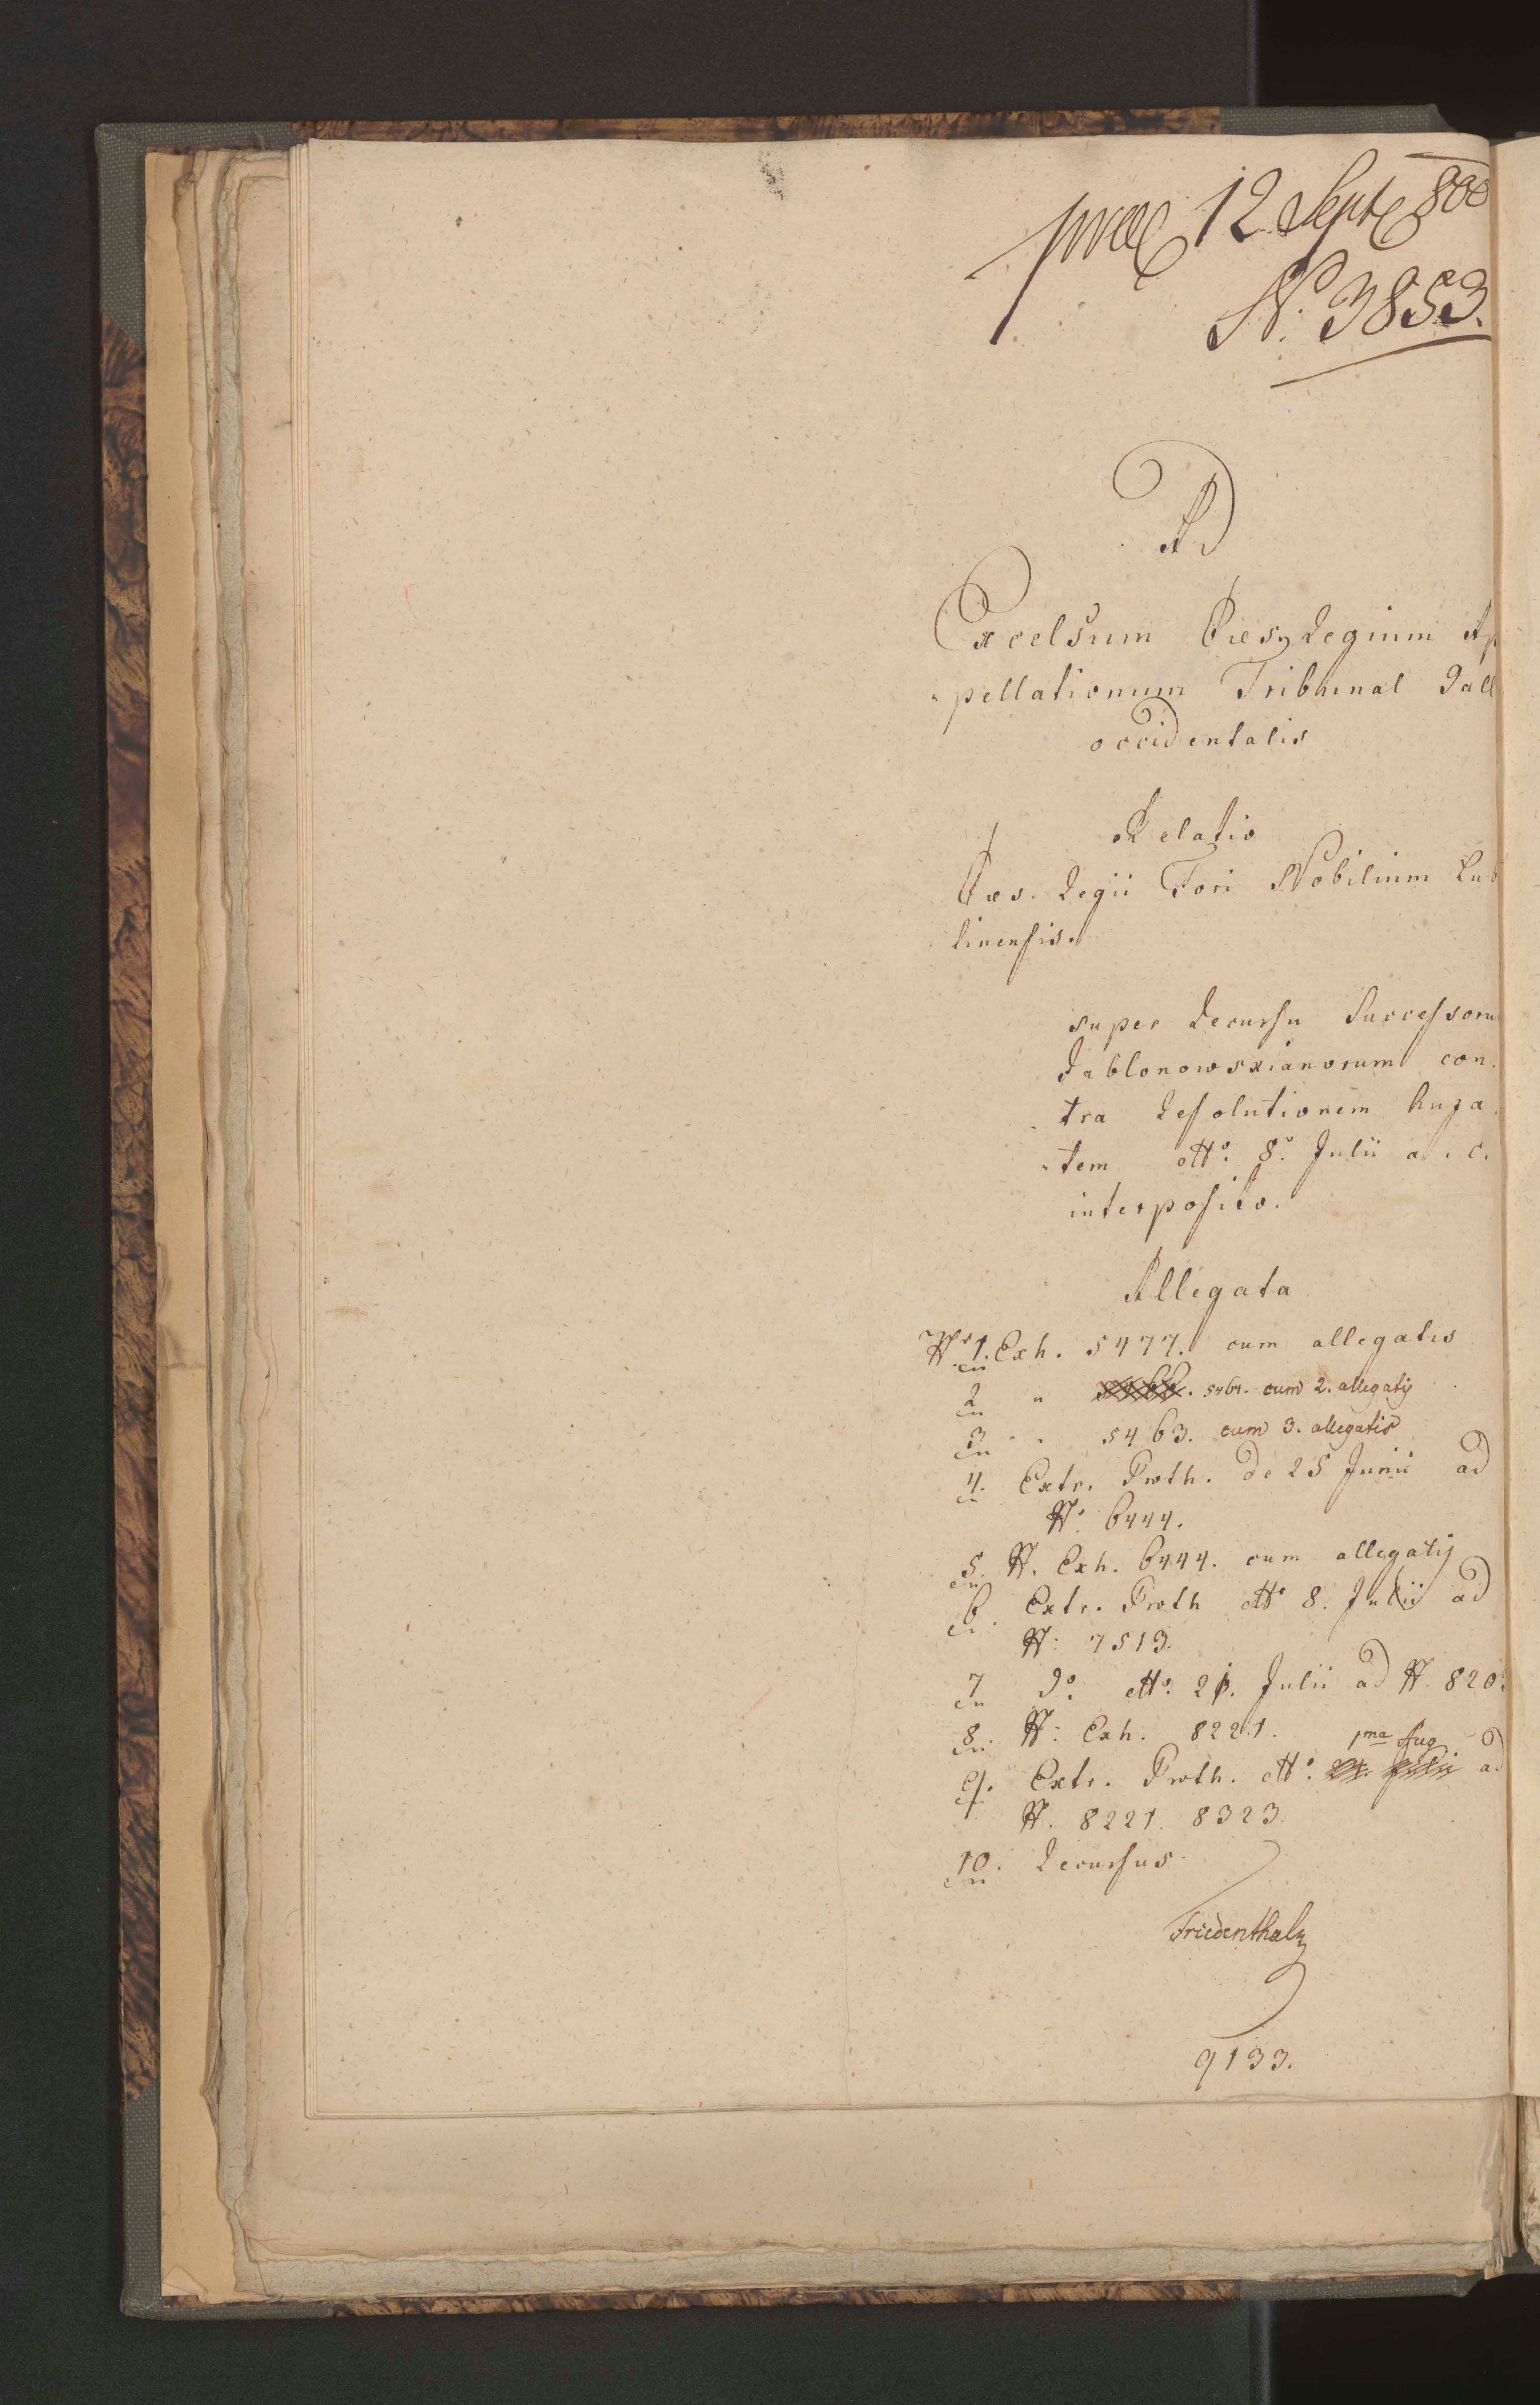 praes 12 Septr 800
N. 3853.
Ad
Excelsum Caes. Regium Ap
pellationum Tribunal Gall
occidentalis
Relatio
Caes. Regii Fori Nobilium Lub
linensis.
super Recursu Successoru
Jablonowskianorum con
tra Resolutionem huja
tem dtto. 8o. Julii a. c.
interposito.
Allegata
Nro 1. Exh. 5477. cum allegatis
2 " 5461. cum 2. allegatis
3 " 5463. cum 3. allegatis
4. Extr. Proth. de 25 Junii ad
N. 6444.
5. N. Exh. 6444. cum allegatis
6. Extr. Proth dtto 8. Julii ad
N. 7513.
7 do. dtto. 21. Julii ad N. 820
8. N. Exh. 8221.
1ma Aug
9. Extr. Proth. dtto. 21. Julii ad
N. 8221. 8323.
10. Recursus
Friedenthal
9133.